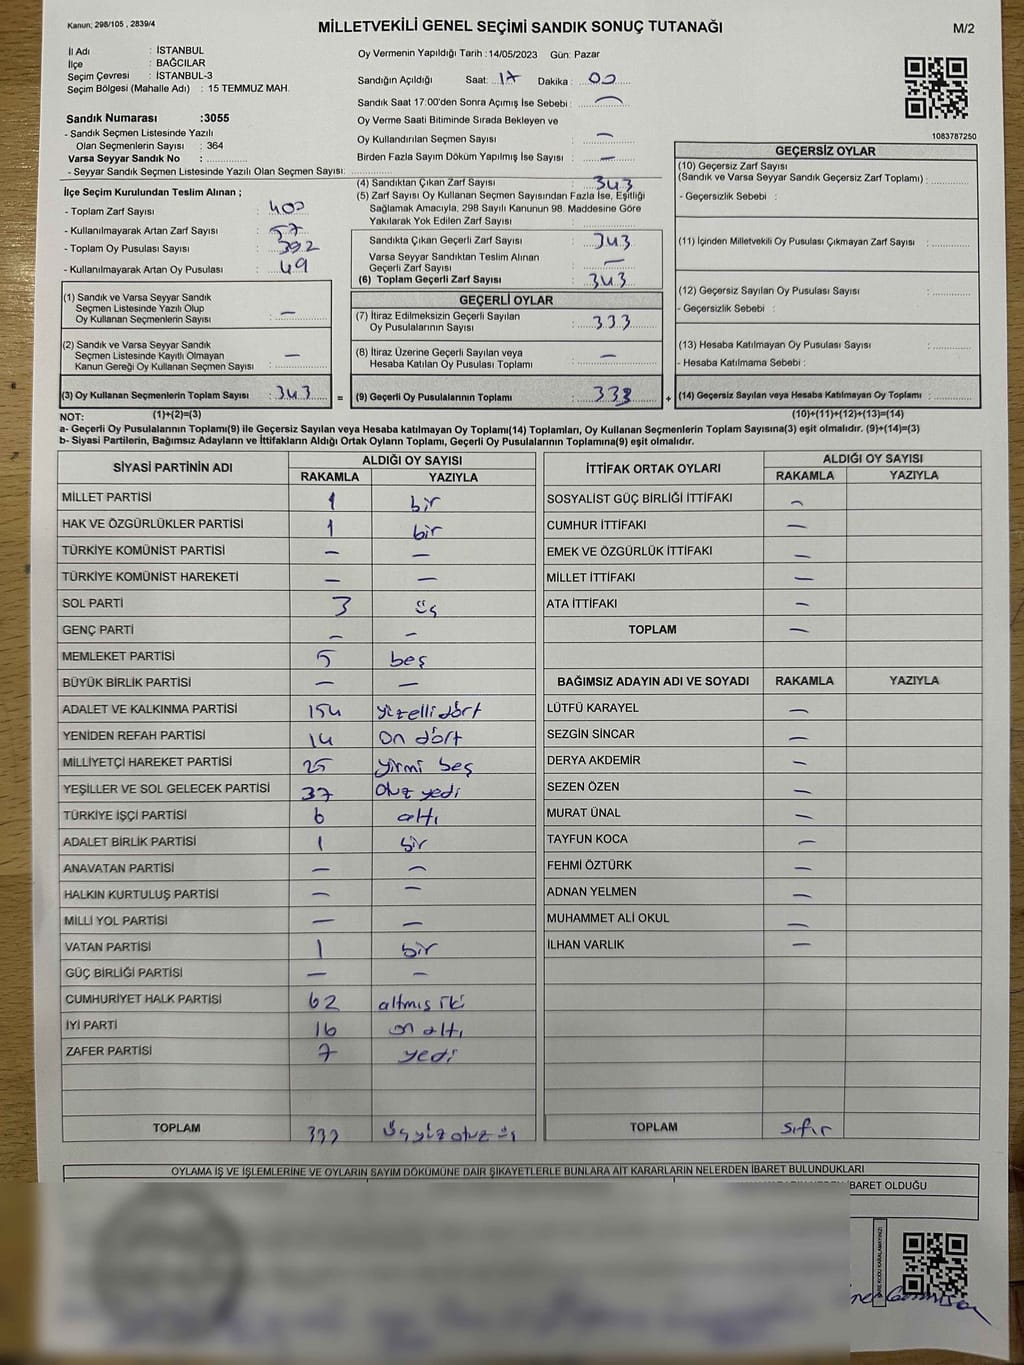 Kanun; 298/105 , 2839/4
MİLLETVEKİLİ GENEL SEÇİMİ SANDIK SONUÇ TUTANAĞI
M/2
İl Adı : İSTANBUL
İlçe : BAĞCILAR
Seçim Çevresi : İSTANBUL-3
Seçim Bölgesi (Mahalle Adı) : 15 TEMMUZ MAH.
Sandık Numarası :3055
- Sandık Seçmen Listesinde Yazılı
Olan Seçmenlerin Sayısı : 364
Varsa Seyyar Sandık No :
- Seyyar Sandık Seçmen Listesinde Yazılı Olan Seçmen Sayısı:
İlçe Seçim Kurulundan Teslim Alınan ;
- Toplam Zarf Sayısı : 400
- Kullanılmayarak Artan Zarf Sayısı : 57
- Toplam Oy Pusulası Sayısı : 392
- Kullanılmayarak Artan Oy Pusulası : 49
(1) Sandık ve Varsa Seyyar Sandık
Seçmen Listesinde Yazılı Olup
Oy Kullanan Seçmenlerin Sayısı : —
(2) Sandık ve Varsa Seyyar Sandık
Seçmen Listesinde Kayıtlı Olmayan
Kanun Gereği Oy Kullanan Seçmen Sayısı : —
(3) Oy Kullanan Seçmenlerin Toplam Sayısı : 343 =
Oy Vermenin Yapıldığı Tarih : 14/05/2023 Gün: Pazar
Sandığın Açıldığı Saat: 17 Dakika : 00
Sandık Saat 17:00'den Sonra Açımış İse Sebebi : —
Oy Verme Saati Bitiminde Sırada Bekleyen ve
Oy Kullandırılan Seçmen Sayısı : —
Birden Fazla Sayım Döküm Yapılmış İse Sayısı : —
(4) Sandıktan Çıkan Zarf Sayısı : 343
(5) Zarf Sayısı Oy Kullanan Seçmen Sayısından Fazla İse, Eşitliği
Sağlamak Amacıyla, 298 Sayılı Kanunun 98. Maddesine Göre
Yakılarak Yok Edilen Zarf Sayısı :
Sandıkta Çıkan Geçerli Zarf Sayısı : 343
Varsa Seyyar Sandıktan Teslim Alınan
Geçerli Zarf Sayısı : —
(6) Toplam Geçerli Zarf Sayısı : 343
GEÇERLİ OYLAR
(7) İtiraz Edilmeksizin Geçerli Sayılan
Oy Pusulalarının Sayısı : 333
(8) İtiraz Üzerine Geçerli Sayılan veya
Hesaba Katılan Oy Pusulası Toplamı : —
(9) Geçerli Oy Pusulalarının Toplamı : 333 +
1083787250
GEÇERSİZ OYLAR
(10) Geçersiz Zarf Sayısı
(Sandık ve Varsa Seyyar Sandık Geçersiz Zarf Toplamı) :
- Geçersizlik Sebebi :
(11) İçinden Milletvekili Oy Pusulası Çıkmayan Zarf Sayısı :
(12) Geçersiz Sayılan Oy Pusulası Sayısı :
- Geçersizlik Sebebi :
(13) Hesaba Katılmayan Oy Pusulası Sayısı :
- Hesaba Katılmama Sebebi :
(14) Geçersiz Sayılan veya Hesaba Katılmayan Oy Toplamı :
NOT: (1)+(2)=(3) (10)+(11)+(12)+(13)=(14)
a- Geçerli Oy Pusulalarının Toplamı(9) ile Geçersiz Sayılan veya Hesaba katılmayan Oy Toplamı(14) Toplamları, Oy Kullanan Seçmenlerin Toplam Sayısına(3) eşit olmalıdır. (9)+(14)=(3)
b- Siyasi Partilerin, Bağımsız Adayların ve İttifakların Aldığı Ortak Oyların Toplamı, Geçerli Oy Pusulalarının Toplamına(9) eşit olmalıdır.
SİYASİ PARTİNİN ADI ALDIĞI OY SAYISI
RAKAMLA YAZIYLA
MİLLET PARTİSİ 1 bir
HAK VE ÖZGÜRLÜKLER PARTİSİ 1 bir
TÜRKİYE KOMÜNİST PARTİSİ — —
TÜRKİYE KOMÜNİST HAREKETİ — —
SOL PARTİ 3 üç
GENÇ PARTİ — —
MEMLEKET PARTİSİ 5 beş
BÜYÜK BİRLİK PARTİSİ — —
ADALET VE KALKINMA PARTİSİ 154 yüzelli dört
YENİDEN REFAH PARTİSİ 14 on dört
MİLLİYETÇİ HAREKET PARTİSİ 25 yirmi beş
YEŞİLLER VE SOL GELECEK PARTİSİ 37 otuz yedi
TÜRKİYE İŞÇİ PARTİSİ 6 altı
ADALET BİRLİK PARTİSİ 1 bir
ANAVATAN PARTİSİ — —
HALKIN KURTULUŞ PARTİSİ — —
MİLLİ YOL PARTİSİ — —
VATAN PARTİSİ 1 bir
GÜÇ BİRLİĞİ PARTİSİ — —
CUMHURİYET HALK PARTİSİ 62 altmış iki
İYİ PARTİ 16 on altı
ZAFER PARTİSİ 7 yedi
TOPLAM 333 üç yüz otuz üç
İTTİFAK ORTAK OYLARI ALDIĞI OY SAYISI
RAKAMLA YAZIYLA
SOSYALİST GÜÇ BİRLİĞİ İTTİFAKI —
CUMHUR İTTİFAKI —
EMEK VE ÖZGÜRLÜK İTTİFAKI —
MİLLET İTTİFAKI —
ATA İTTİFAKI —
TOPLAM —
BAĞIMSIZ ADAYIN ADI VE SOYADI RAKAMLA YAZIYLA
LÜTFÜ KARAYEL —
SEZGİN SİNCAR —
DERYA AKDEMİR —
SEZEN ÖZEN —
MURAT ÜNAL —
TAYFUN KOCA —
FEHMİ ÖZTÜRK —
ADNAN YELMEN —
MUHAMMET ALİ OKUL —
İLHAN VARLIK —
TOPLAM sıfır
OYLAMA İŞ VE İŞLEMLERİNE VE OYLARIN SAYIM DÖKÜMÜNE DAİR ŞİKAYETLERLE BUNLARA AİT KARARLARIN NELERDEN İBARET BULUNDUKLARI
İBARET OLDUĞU